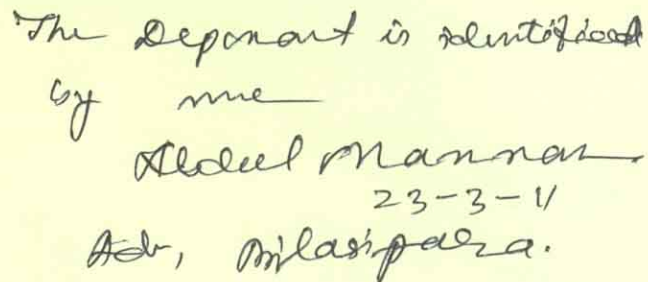 The Deponant is identified
by me
Abdul Mannan
23-3-11
Adv, Bilasipara.